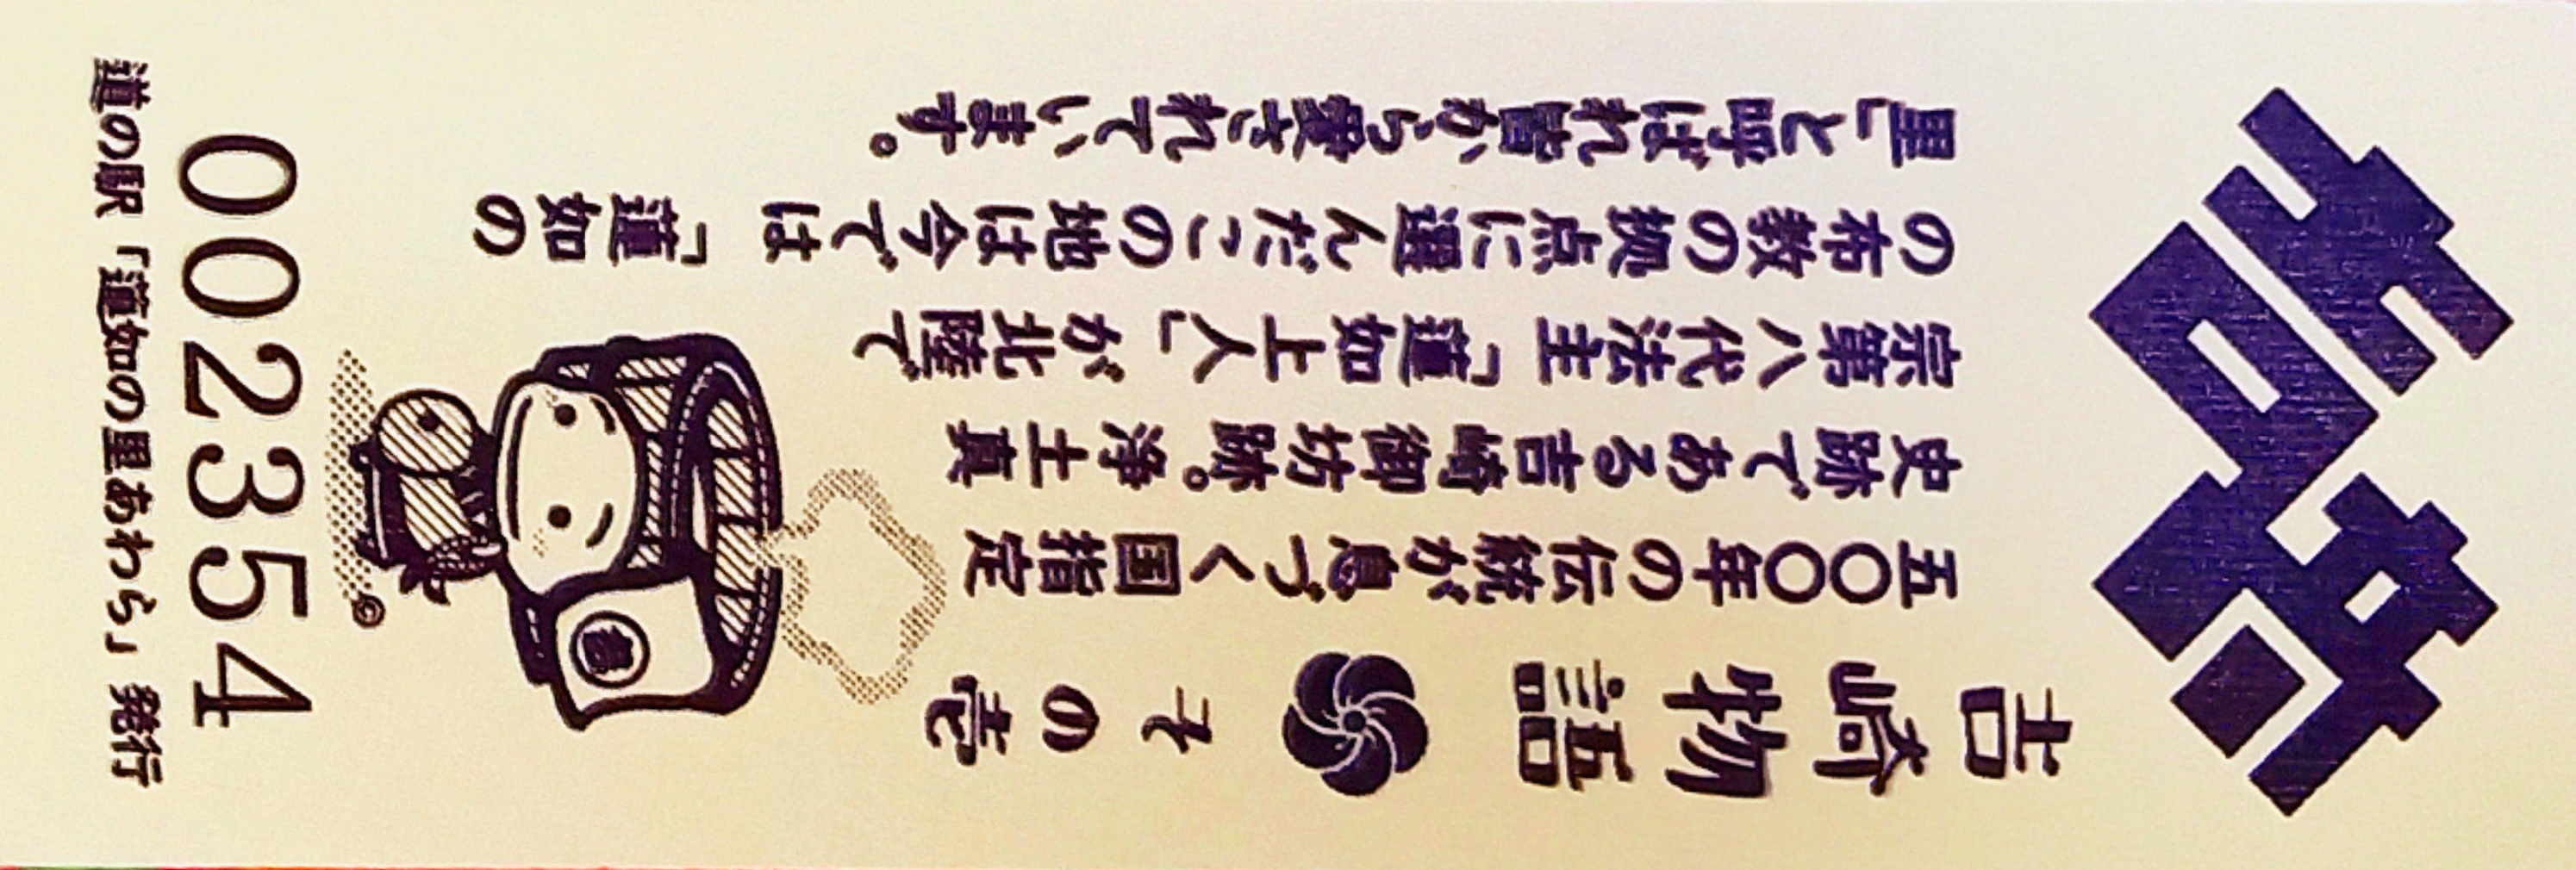 吉崎物語 その壱
五〇〇年の伝統が息づく国指定
史跡である吉崎御坊跡。浄土真
宗第八代法主「蓮如上人」が北陸で
の布教の拠点に選んだこの地は今では「蓮如の
里」と呼ばれ皆から愛されています。
©
002354
道の駅「蓮如の里あわら」発行